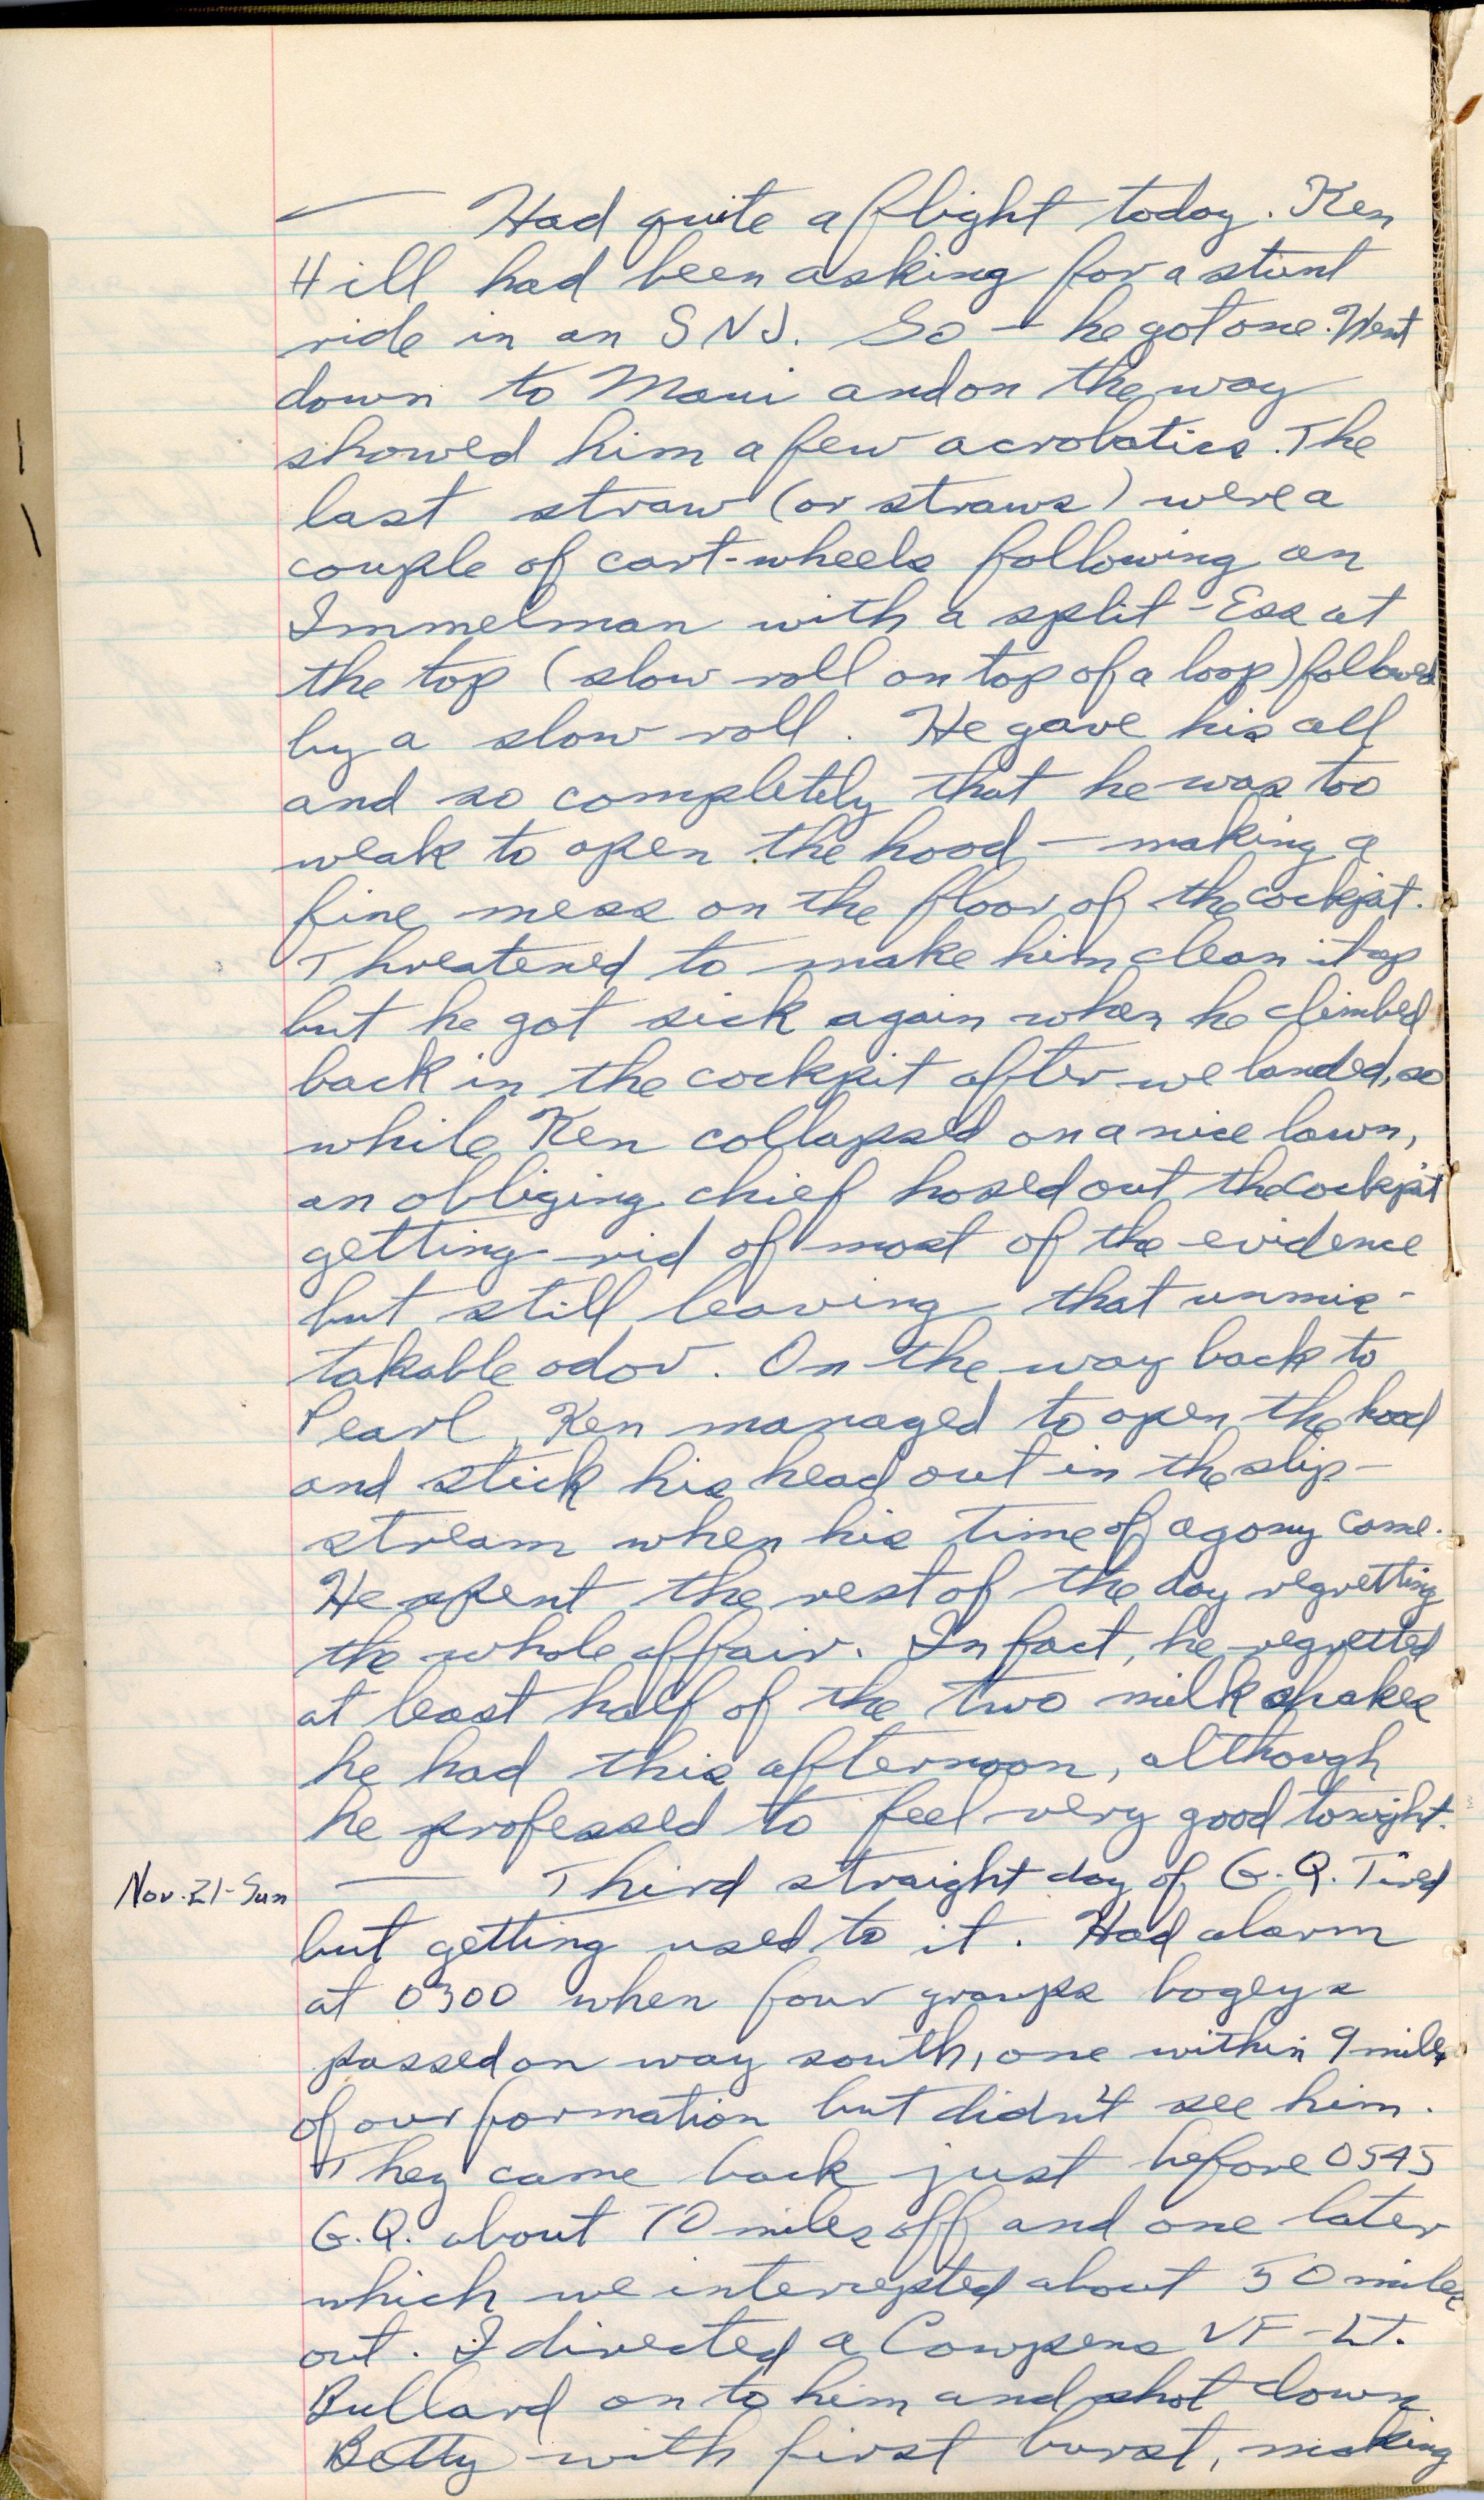 — Had quite a flight today. Ken
Hill had been asking for a stunt
ride in an SNJ. So — he got one. Went
down to Maui and on the way
showed him a few acrobatics. The
last straw (or straws) were a
couple of cart-wheels following an
Immelman with a split-Ess at
the top (slow roll on top of a loop) followed
by a slow roll. He gave his all
and so completely that he was too
weak to open the hood — making a
fine mess on the floor of the cockpit.
Threatened to make him clean it up
but he got sick again when he climbed
back in the cockpit after we landed, so
while Ken collapsed on a nice lawn,
an obliging chief hosed out the cockpit
getting rid of most of the evidence
but still leaving that unmis-
takable odor. On the way back to
Pearl, Ken managed to open the hood
and stick his head out in the slip-
stream when his time of agony came.
He spent the rest of the day regretting
the whole affair. In fact, he regretted
at least half of the two milk shakes
he had this afternoon, although
he professed to feel very good tonight.
Nov. 21 - Sun — Third straight day of G.Q. Tired
but getting used to it. Had alarm
at 0300 when four groups bogeys
passed on way south, one within 9 miles
of our formation but didn't see him.
They came back just before 0545
G.Q. about 70 miles off and one later
which we intercepted about 50 miles
out. I directed a Cowpens VF - Lt.
Bullard on to him and shot down
Betty with first burst, making